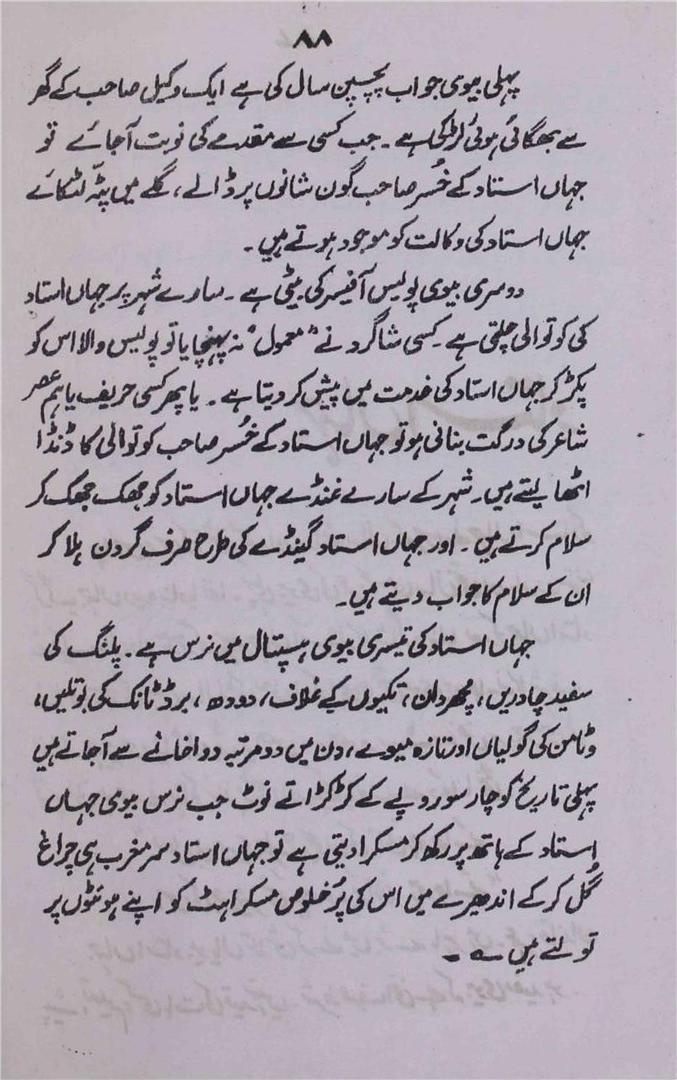 ۸۸
پہلی بیوی جو اب پچپن سال کی ہے ایک وکیل صاحب کے گھر
سے بھگائی ہوئی لڑکی ہے۔ جب کسی سے مقدمے کی نوبت آجائے تو
جہاں استاد کے خُسر صاحب گون شانوں پر ڈالے، گلے میں پٹہ لٹکائے
جہاں استاد کی وکالت کو موجود ہوتے ہیں۔
دوسری بیوی پولیس آفیسر کی بیٹی ہے۔ سارے شہر پر جہاں استاد
کی کوتوالی چلتی ہے۔ کسی شاگرد نے "معمول" نہ پہنچایا تو پولیس والا اس کو
پکڑ کر جہاں استاد کی خدمت میں پیش کر دیتا ہے۔ یا پھر کسی حریف یا ہم عصر
شاعر کی درگت بنانی ہو تو جہاں استاد کے خُسر صاحب کوتوالی کا ڈنڈا
اٹھا لیتے ہیں۔ شہر کے سارے غنڈے جہاں استاد کو جھک جھک کر
سلام کرتے ہیں۔ اور جہاں استاد گینڈے کی طرح صرف گردن ہلا کر
ان کے سلام کا جواب دیتے ہیں۔
جہاں استاد کی تیسری بیوی ہسپتال میں نرس ہے۔ پلنگ کی
سفید چادریں، مچھردان، تکیوں کے غلاف، دودھ، برڈ ٹانک کی بوتلیں،
وٹامن کی گولیاں اور تازہ میوے، دن میں دو مرتبہ دواخانے سے آجاتے ہیں
پہلی تاریخ کو چار سو روپے کے کڑکڑاتے نوٹ جب نرس بیوی جہاں
اِستاد کے ہاتھ پر رکھ کر مسکرا دیتی ہے تو جہاں استاد سرِ مغرب ہی چراغ
گُل کر کے اندھیرے میں اس کی پُر خلوص مسکراہٹ کو اپنے ہونٹوں پر
تولتے ہیں ے ۔